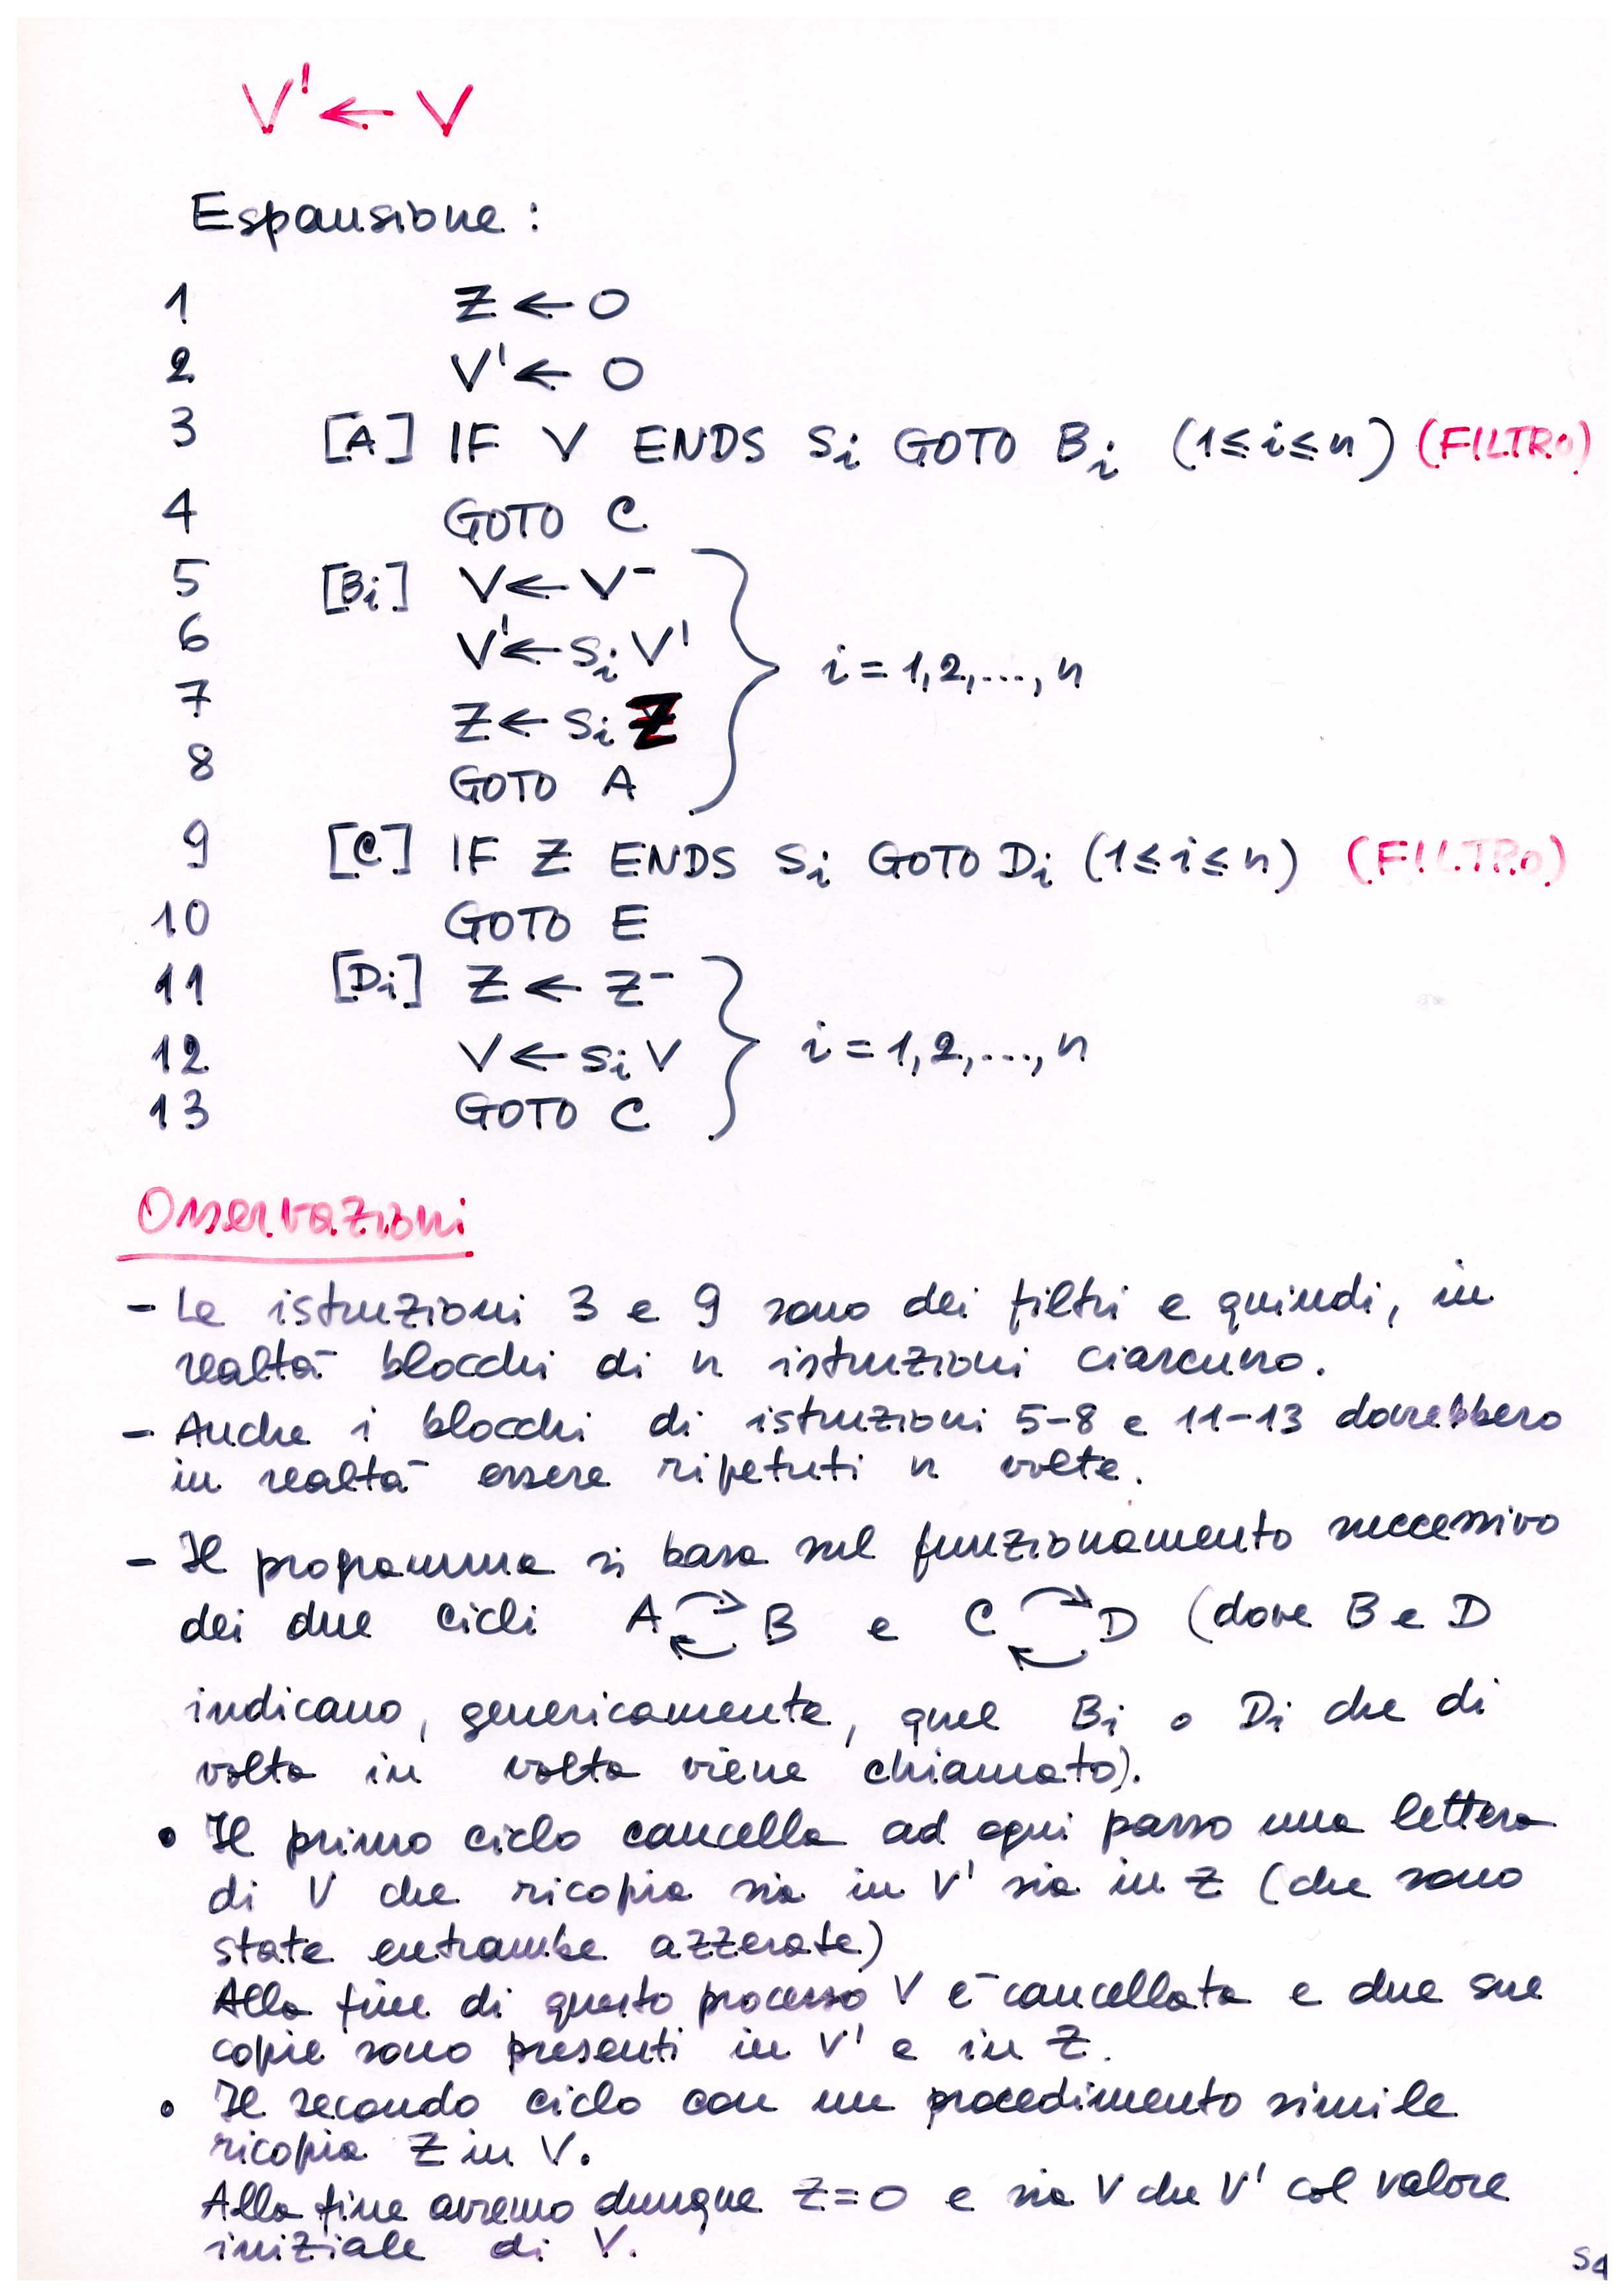 V' ← V
Espansione :
1 Z ← 0
2 V' ← 0
3 [A] IF V ENDS Si GOTO Bi (1≤i≤n) (FILTRO)
4 GOTO C
5 [Bi] V ← V⁻
6 V' ← Si V'
7 Z ← Si Z
8 GOTO A
i = 1,2,...,n
9 [C] IF Z ENDS Si GOTO Di (1≤i≤n) (FILTRO)
10 GOTO E
11 [Di] Z ← Z⁻
12 V ← Si V
13 GOTO C
i = 1,2,...,n
Osservazioni
- Le istruzioni 3 e 9 sono dei filtri e quindi, in
realtà blocchi di n istruzioni ciascuno.
- Anche i blocchi di istruzioni 5-8 e 11-13 dovrebbero
in realtà essere ripetuti n volte.
- Il programma si basa sul funzionamento successivo
dei due cicli A ⇄ B e C ⇄ D (dove B e D
indicano, genericamente, quel Bi o Di che di
volta in volta viene chiamato).
• Il primo ciclo cancella ad ogni passo una lettera
di V che ricopia sia in V' sia in Z (che sono
state entrambe azzerate)
Alla fine di questo processo V è cancellata e due sue
copie sono presenti in V' e in Z.
• Il secondo ciclo con un procedimento simile
ricopia Z in V.
Alla fine avremo dunque Z=0 e sia V che V' col valore
iniziale di V.